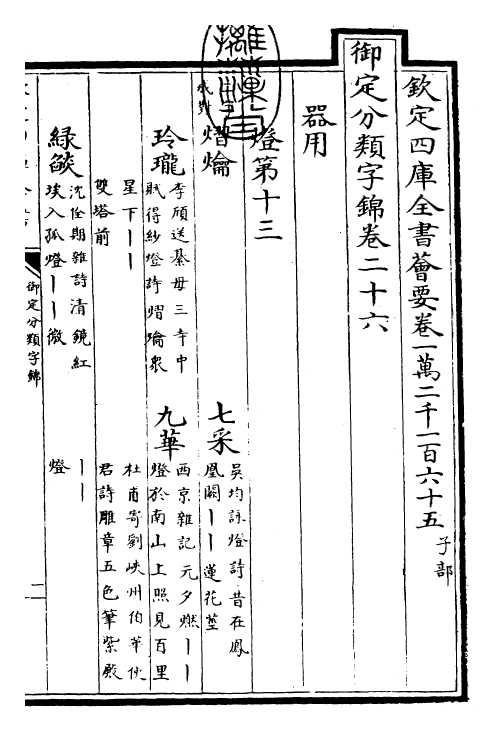 欽定四庫全書薈要卷一萬二千一百六十五 子部
御定分類字錦卷二十六
器用
燈第十三
成對
熠爚
七采 吳均詠燈詩昔在鳳
凰闕丨丨蓮花莖
玲瓏 李頎送綦毋三寺中
賦得紗燈詩熠爚衆
九華 西京雜記元夕燃丨丨
燈於南山上照見百里
星下丨丨
雙塔前
杜甫寄劉峽州伯華使
君詩雕章五色筆紫殿
綠燄 沈佺期雜詩清鏡紅
埃入孤燈丨丨微
丨丨
燈
御定分類字錦
二